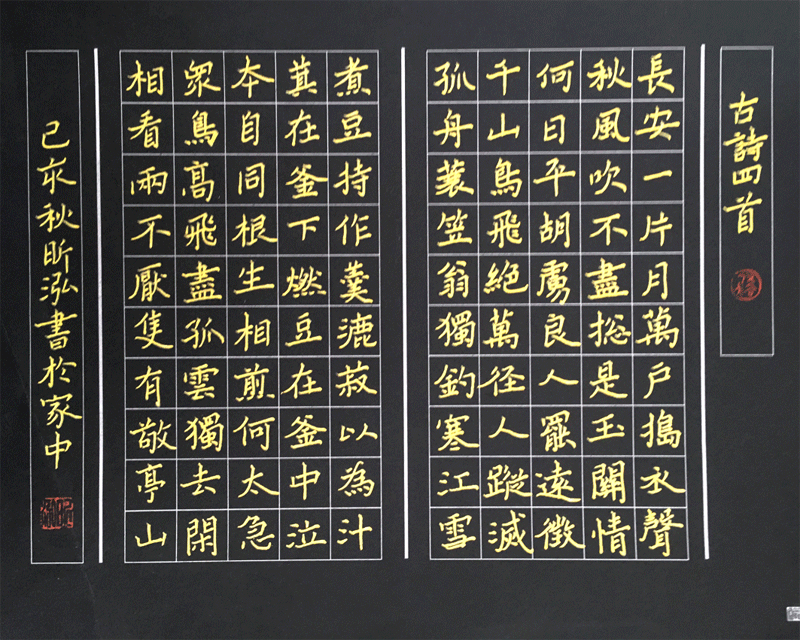 古詩四首
長安一片月萬户搗衣聲
秋風吹不盡捴是玉關情
何日平胡虜良人罷遠徵
千山鳥飛絕萬径人蹤滅
孤舟蓑笠翁獨釣寒江雪
煮豆持作羹漉菽以為汁
萁在釜下燃豆在釜中泣
本自同根生相煎何太急
衆鳥高飛盡孤雲獨去閑
相看兩不厭隻有敬亭山
己亥秋昕泓書於家中